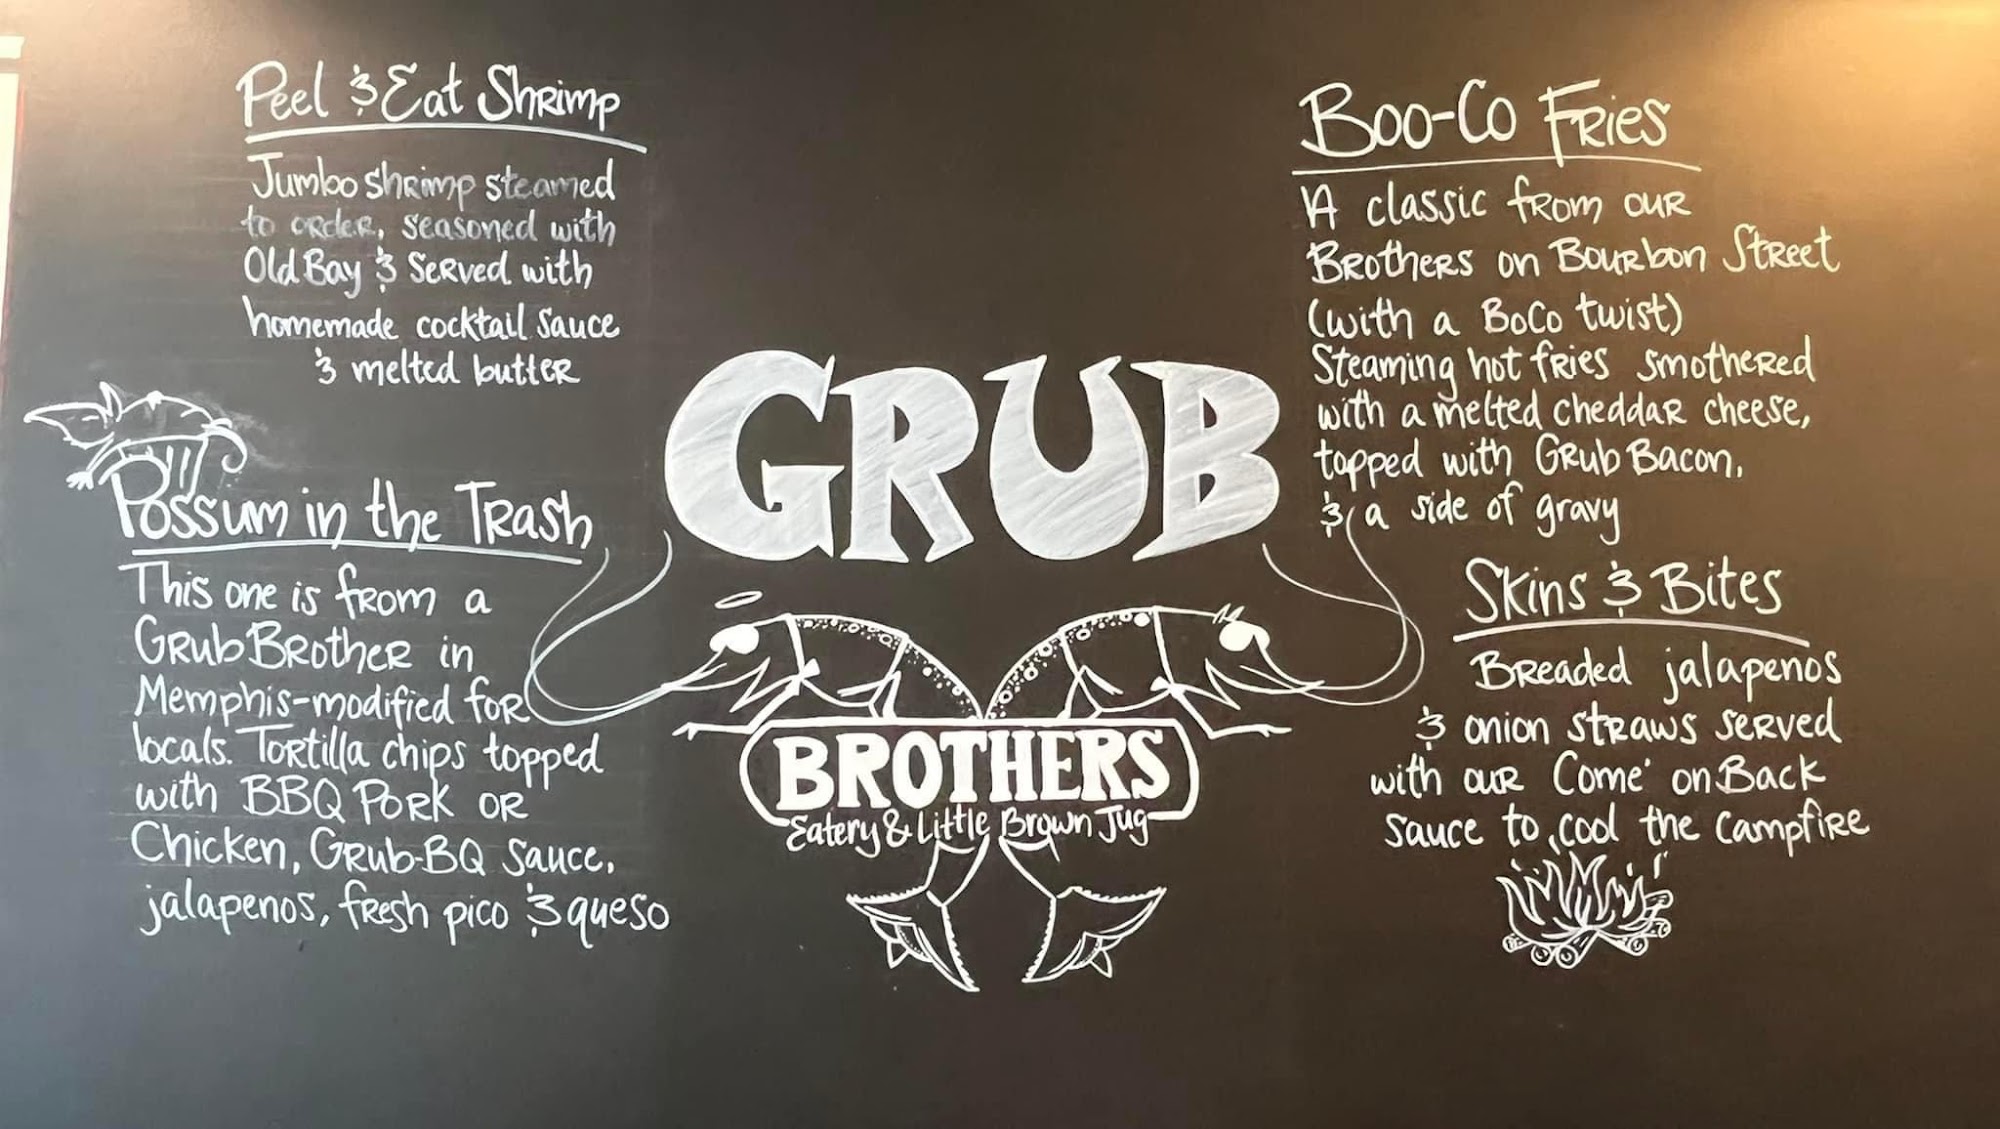 Peel & Eat Shrimp
Jumbo shrimp steamed
to order, seasoned with
Old Bay & served with
homemade cocktail sauce
& melted butter
Possum in the Trash
This one is from a
Grub Brother in
Memphis-modified for
locals. Tortilla chips topped
with BBQ Pork or
Chicken, Grub-BQ Sauce,
jalapenos, fresh pico & queso
GRUB
BROTHERS
Eatery & Little Brown Jug
Boo-Co Fries
A classic from our
Brothers on Bourbon Street
(with a BoCo twist)
Steaming hot fries smothered
with a melted cheddar cheese,
topped with Grub Bacon,
& a side of gravy
Skins & Bites
Breaded jalapenos
& onion straws served
with our Come' on Back
sauce to cool the campfire